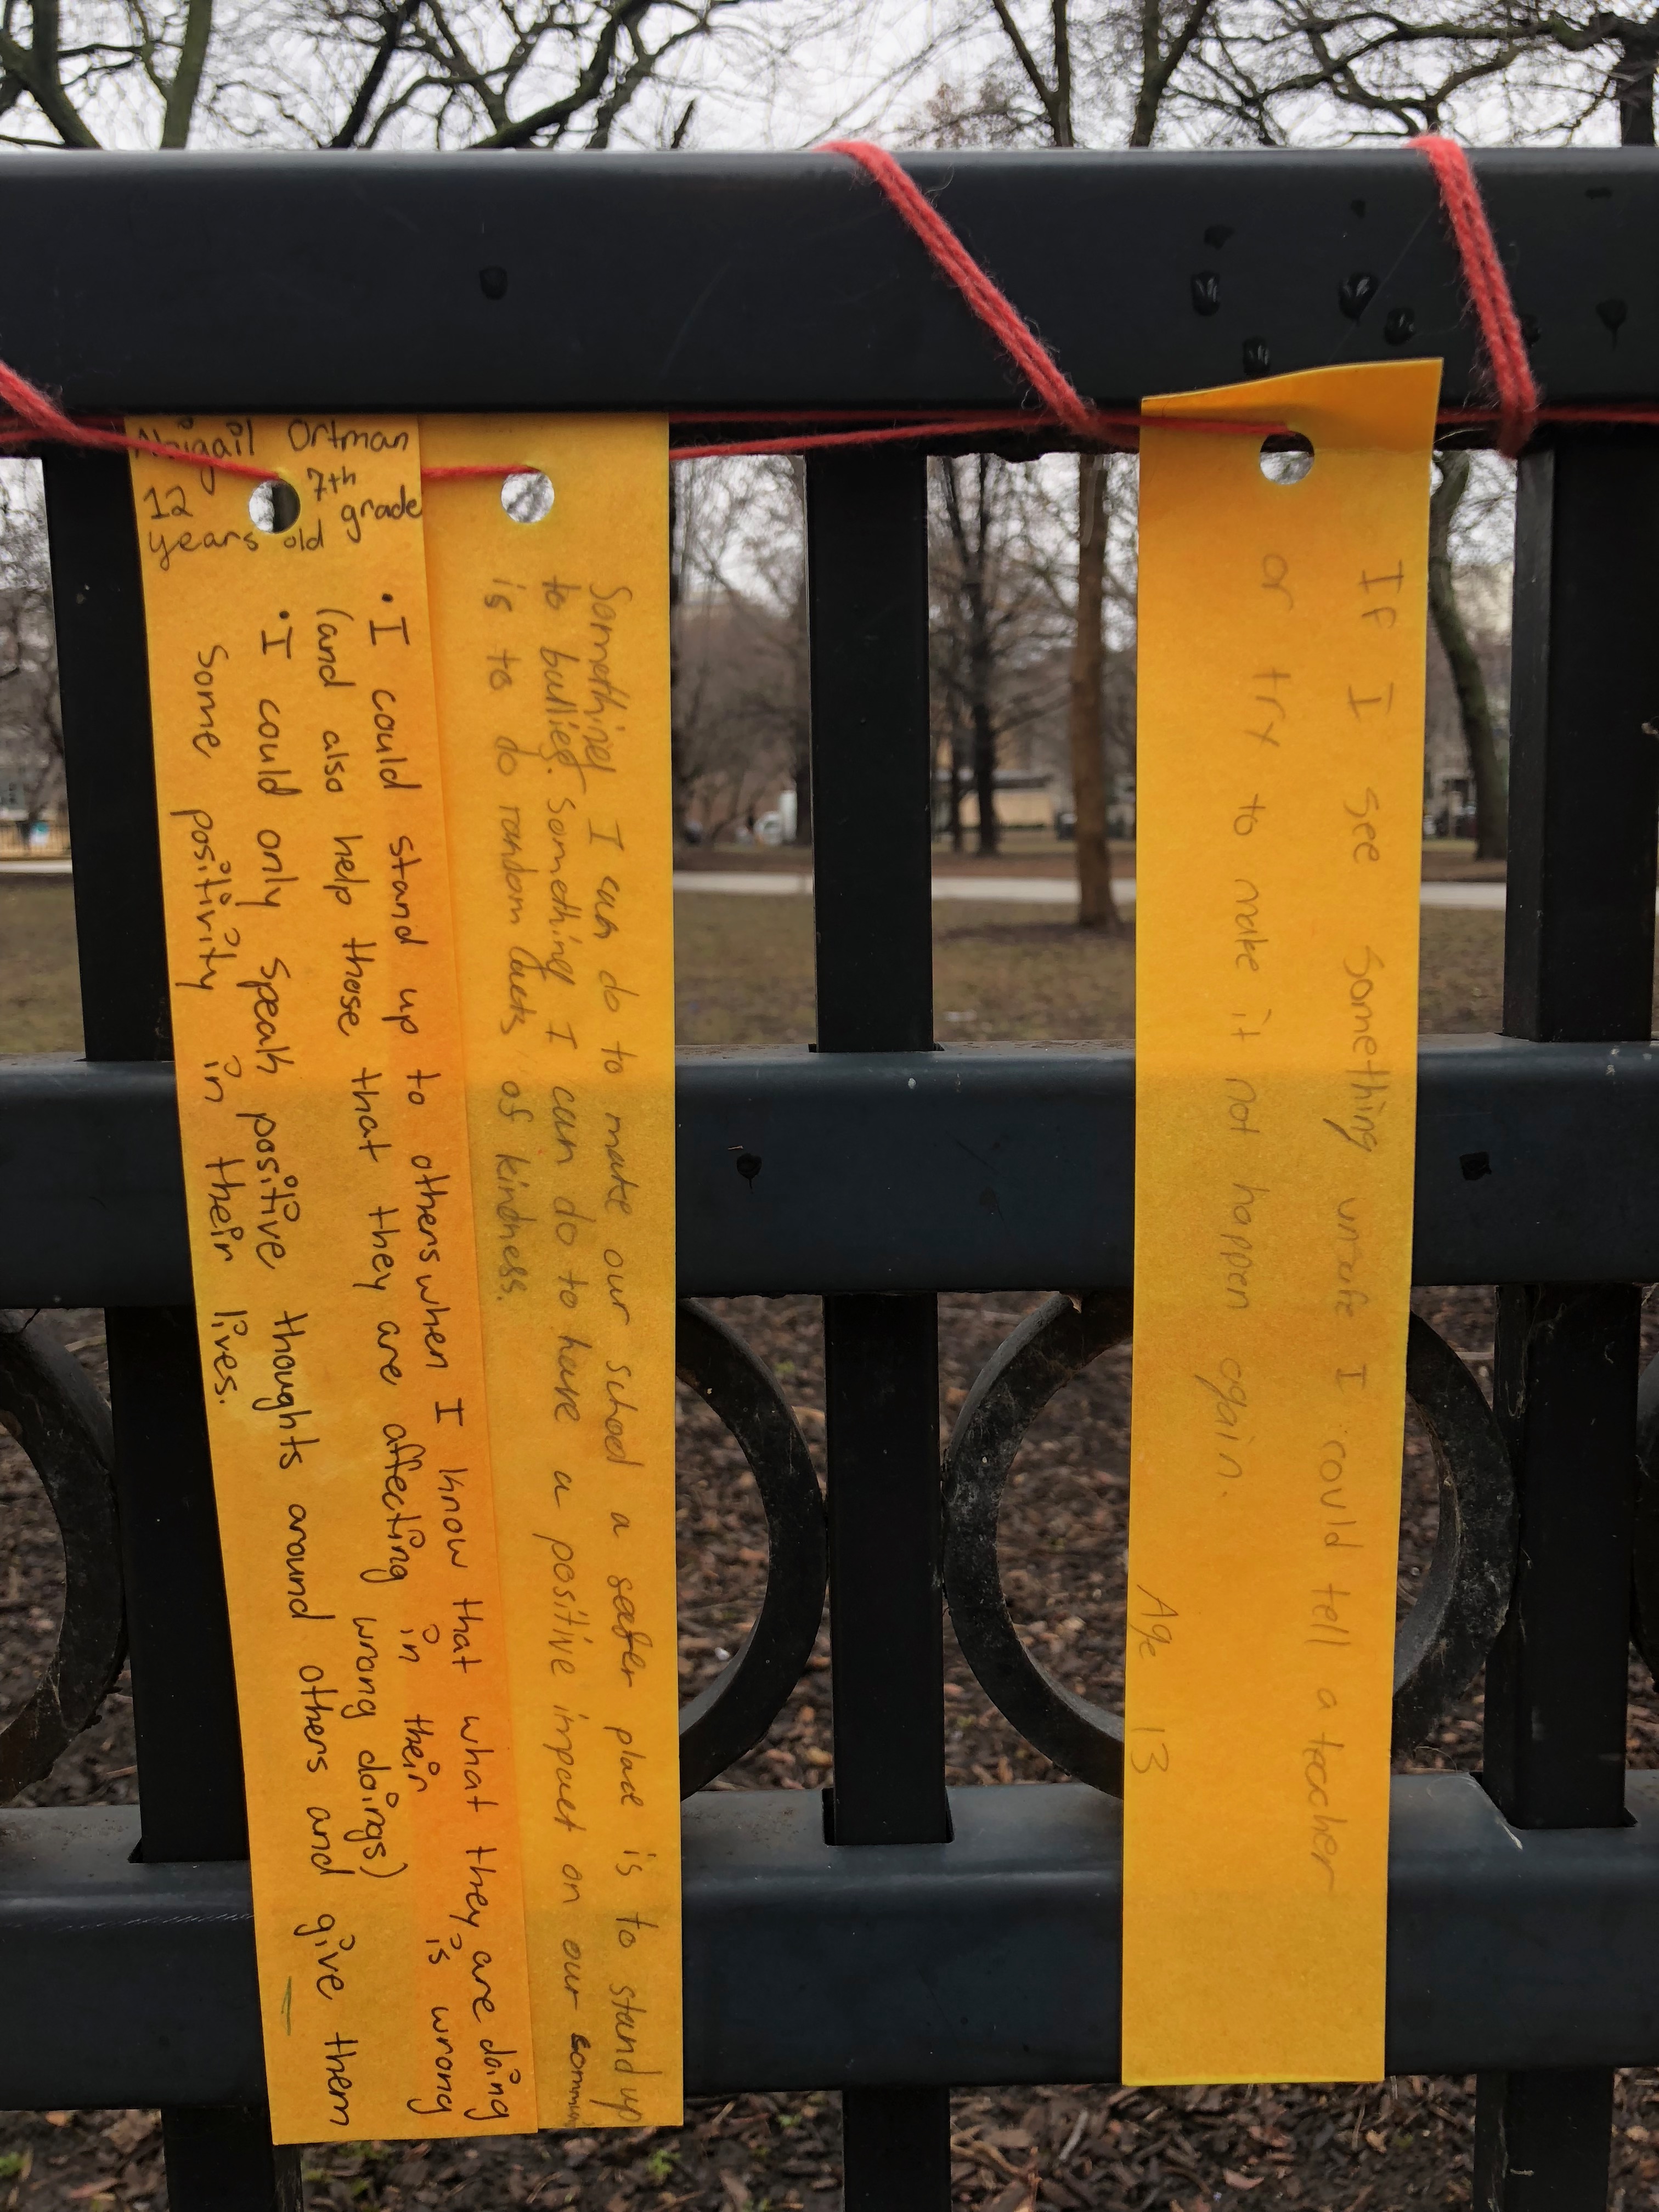 Abigail Ortman
12 7th
years old grade
• I could stand up to others when I know that what they are doing
is wrong
(and also help those that they are affecting in their
wrong doings)
• I could only speak positive thoughts around others and give them
some positivity in their lives.
Something I can do to make our school a safer place is to stand up
to bullies. Something I can do to have a positive impact on our
is to do random acts of kindness.
If I see something unsafe I could tell a teacher
or try to make it not happen again.
Age 13